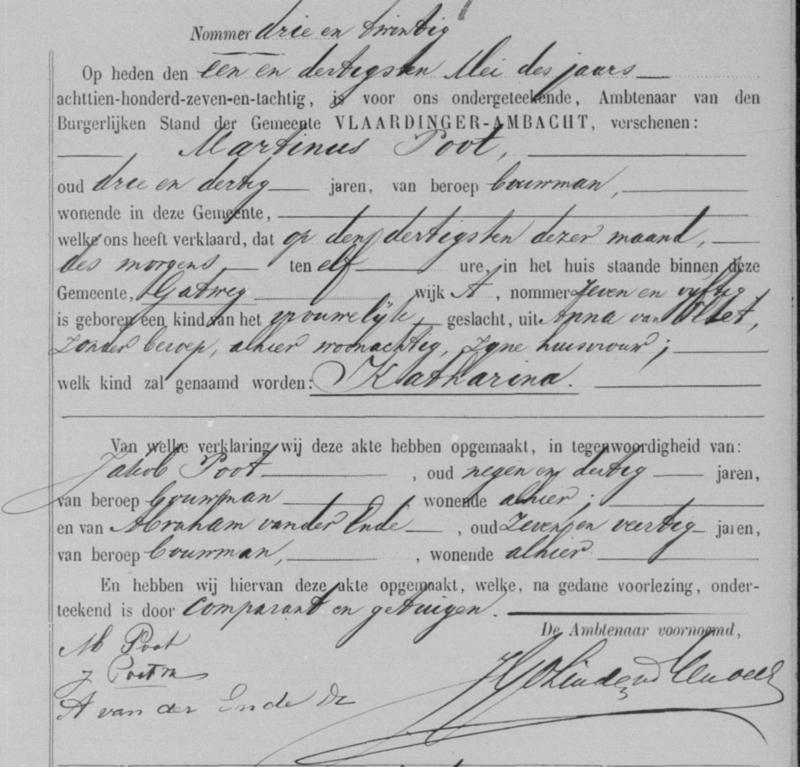 Nommer drie en twintig
Op heden den een en dertigsten Mei des jaars
achttien-honderd-zeven-en-tachtig, is voor ons ondergeteekende, Ambtenaar van den
Burgerlijken Stand der Gemeente VLAARDINGER-AMBACHT, verschenen:
Martinus Poot,
oud drie en dertig jaren, van beroep bouwman,
wonende in deze Gemeente,
welke ons heeft verklaard, dat op den dertigsten dezer maand,
des morgens ten elf ure, in het huis staande binnen deze
Gemeente, Gatweg wijk A, nommer zeven en vijftig
is geboren een kind van het vrouwelijk geslacht, uit Anna van
zonder beroep, alhier woonachtig, zijne huisvrouw;
welk kind zal genaamd worden: Katharina.
Van welke verklaring wij deze akte hebben opgemaakt, in tegenwoordigheid van:
Jakob Poot, oud negen en dertig jaren,
van beroep bouwman, wonende alhier;
en van Abraham van der Ende, oud zeven en veertig jaren,
van beroep bouwman, wonende alhier
En hebben wij hiervan deze akte opgemaakt, welke, na gedane voorlezing, onder-
teekend is door comparant en getuigen.
De Ambtenaar voornoemd,
M Poot
J Poot
A van der Ende